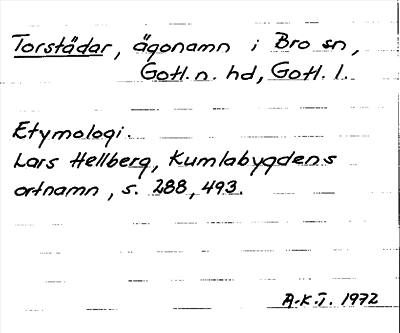 Torstädar, ägonamn i Bro sn,
Gotl. n. hd, Gotl. l.
Etymologi.
Lars Hellberg, Kumlabygdens
ortnamn, s. 288, 493.
A-K.I. 1972